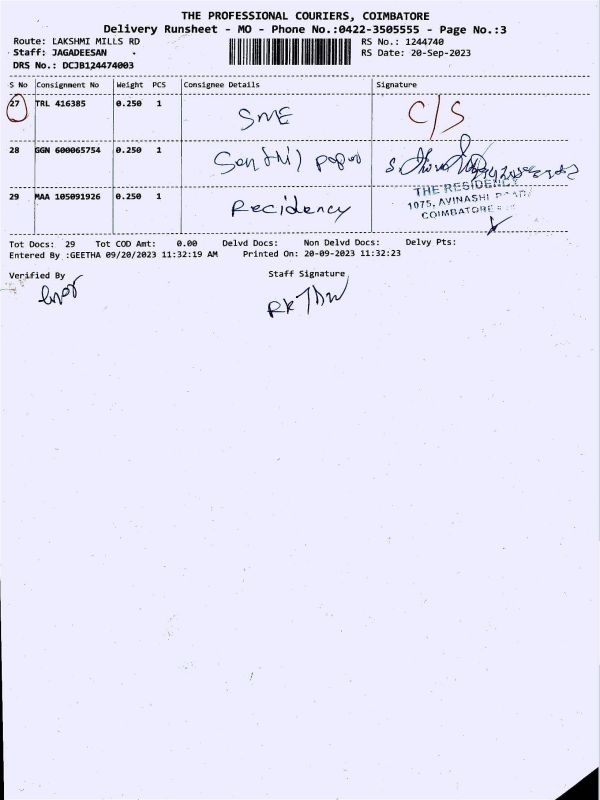 THE PROFESSIONAL COURIERS, COIMBATORE
Delivery Runsheet - MO - Phone No.:0422-3505555 - Page No.:3
Route: LAKSHMI MILLS RD RS No.: 1244740
Staff: JAGADEESAN RS Date: 20-Sep-2023
DRS No.: DCJB124474003
S No Consignment No Weight PCS Consignee Details Signature
27 TRL 416385 0.250 1 SME C/S
28 GGN 600065754 0.250 1 Senthil papers
29 MAA 105091926 0.250 1 Recidency
THE RESIDENCY
1075, AVINASHI ROAD
COIMBATORE
Tot Docs: 29 Tot COD Amt: 0.00 Delvd Docs: Non Delvd Docs: Delvy Pts:
Entered By :GEETHA 09/20/2023 11:32:19 AM Printed On: 20-09-2023 11:32:23
Verified By Staff Signature